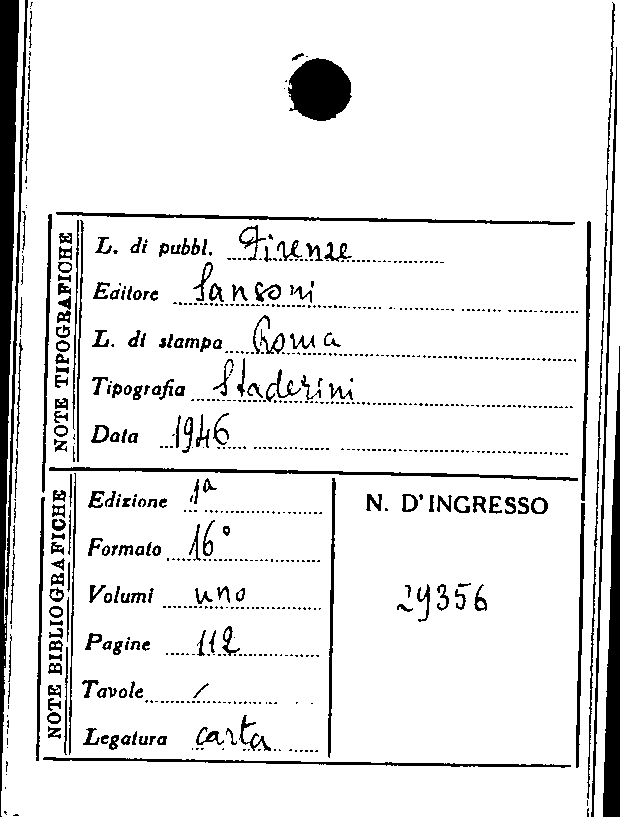 NOTE TIPOGRAFICHE
L. di pubbl. Firenze
Editore Sansoni
L. di stampa Roma
Tipografia Staderini
Data 1946
NOTE BIBLIOGRAFICHE
Edizione 1a
Formato 16°
Volumi uno
Pagine 112
Tavole /
Legatura carta
N. D'INGRESSO
29356